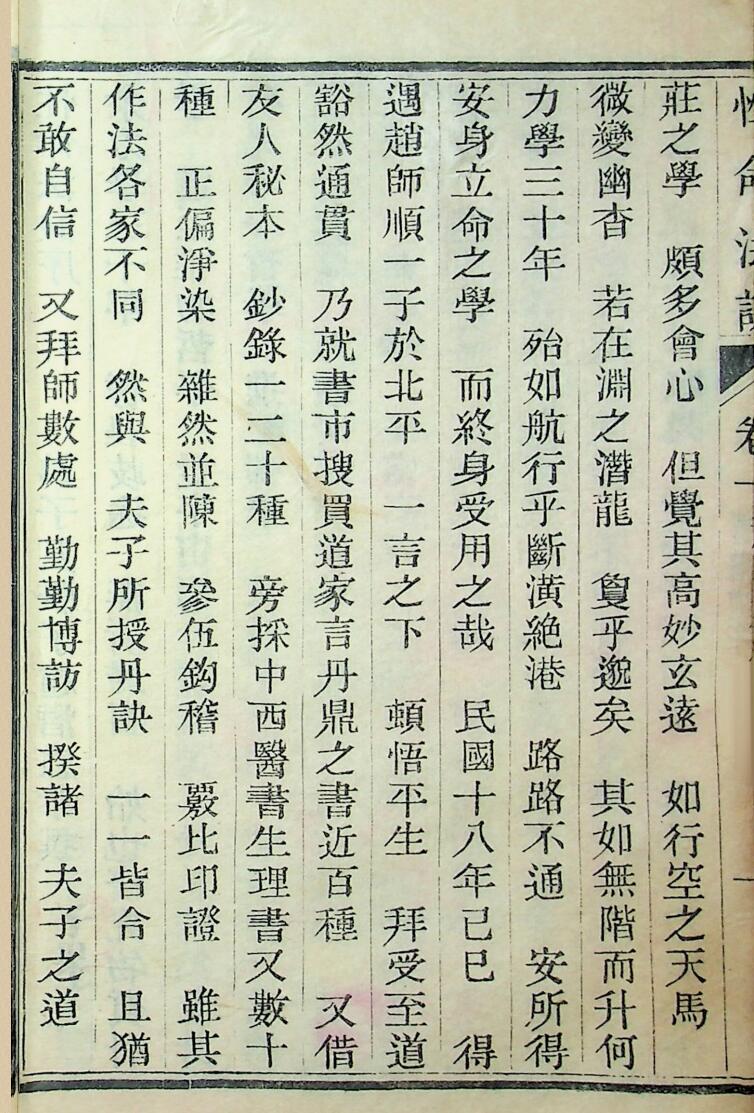 性命法訣 卷一 一
莊之學 頗多會心 但覺其高妙玄遠 如行空之天馬
微變幽杳 若在淵之潛龍 敻乎邈矣 其如無階而升何
力學三十年 殆如航行乎斷潢絕港 路路不通 安所得
安身立命之學 而終身受用之哉 民國十八年己巳 得
遇趙師順一子於北平 一言之下 頓悟平生 拜受至道
豁然通貫 乃就書市搜買道家言丹鼎之書近百種 又借
友人秘本 鈔錄一二十種 旁採中西醫書生理書又數十
種 正偏淨染 雜然並陳 參伍鈎稽 覈比印證 雖其
作法各家不同 然與 夫子所授丹訣 一一皆合 且猶
不敢自信 又拜師數處 勤勤博訪 揆諸 夫子之道